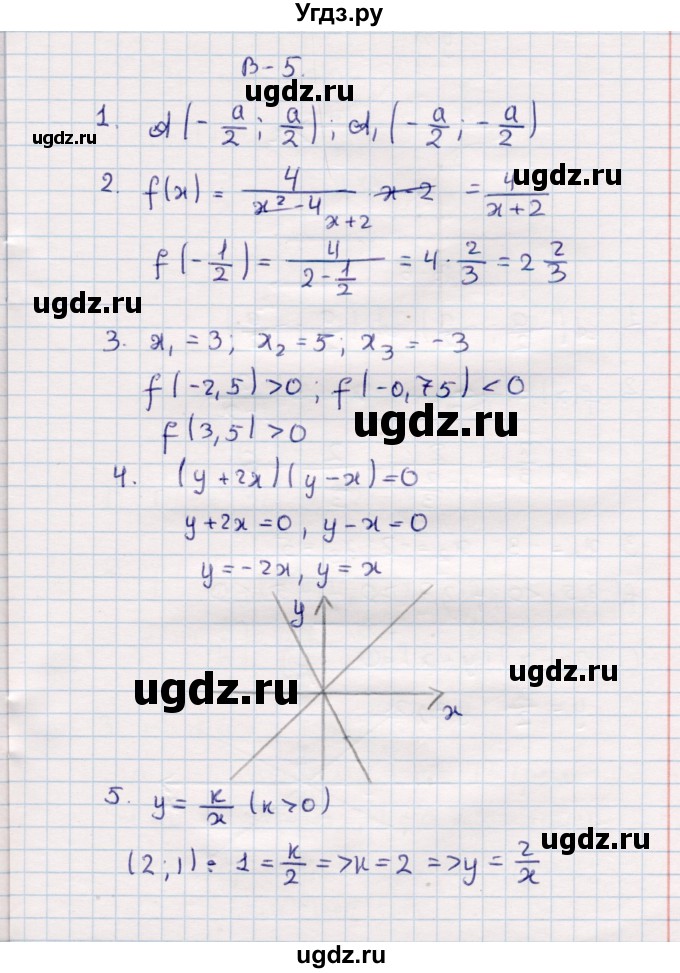 Угдз.ру
В-5.
ugdz.ru
1. A(-a/2; a/2); A₁(-a/2; -a/2)
ugdz.ru
2. f(x) = 4/(x²-4) x-2 = 4/(x+2)
x+2
ugdz.ru
f(-1/2) = 4/(2-1/2) = 4·2/3 = 2 2/3
ugdz.ru
3. x₁=3; x₂=5; x₃=-3
f(-2,5)>0; f(-0,75)<0
ugdz.ru
f(3,5)>0
4. (y+2x)(y-x)=0
y+2x=0, y-x=0
y=-2x, y=x
y
ugdz.ru
ugdz.ru
x
5. y=к/x (к>0)
ugdz.ru
(2;1): 1=к/2 => к=2 => y=2/x
ugdz.ru